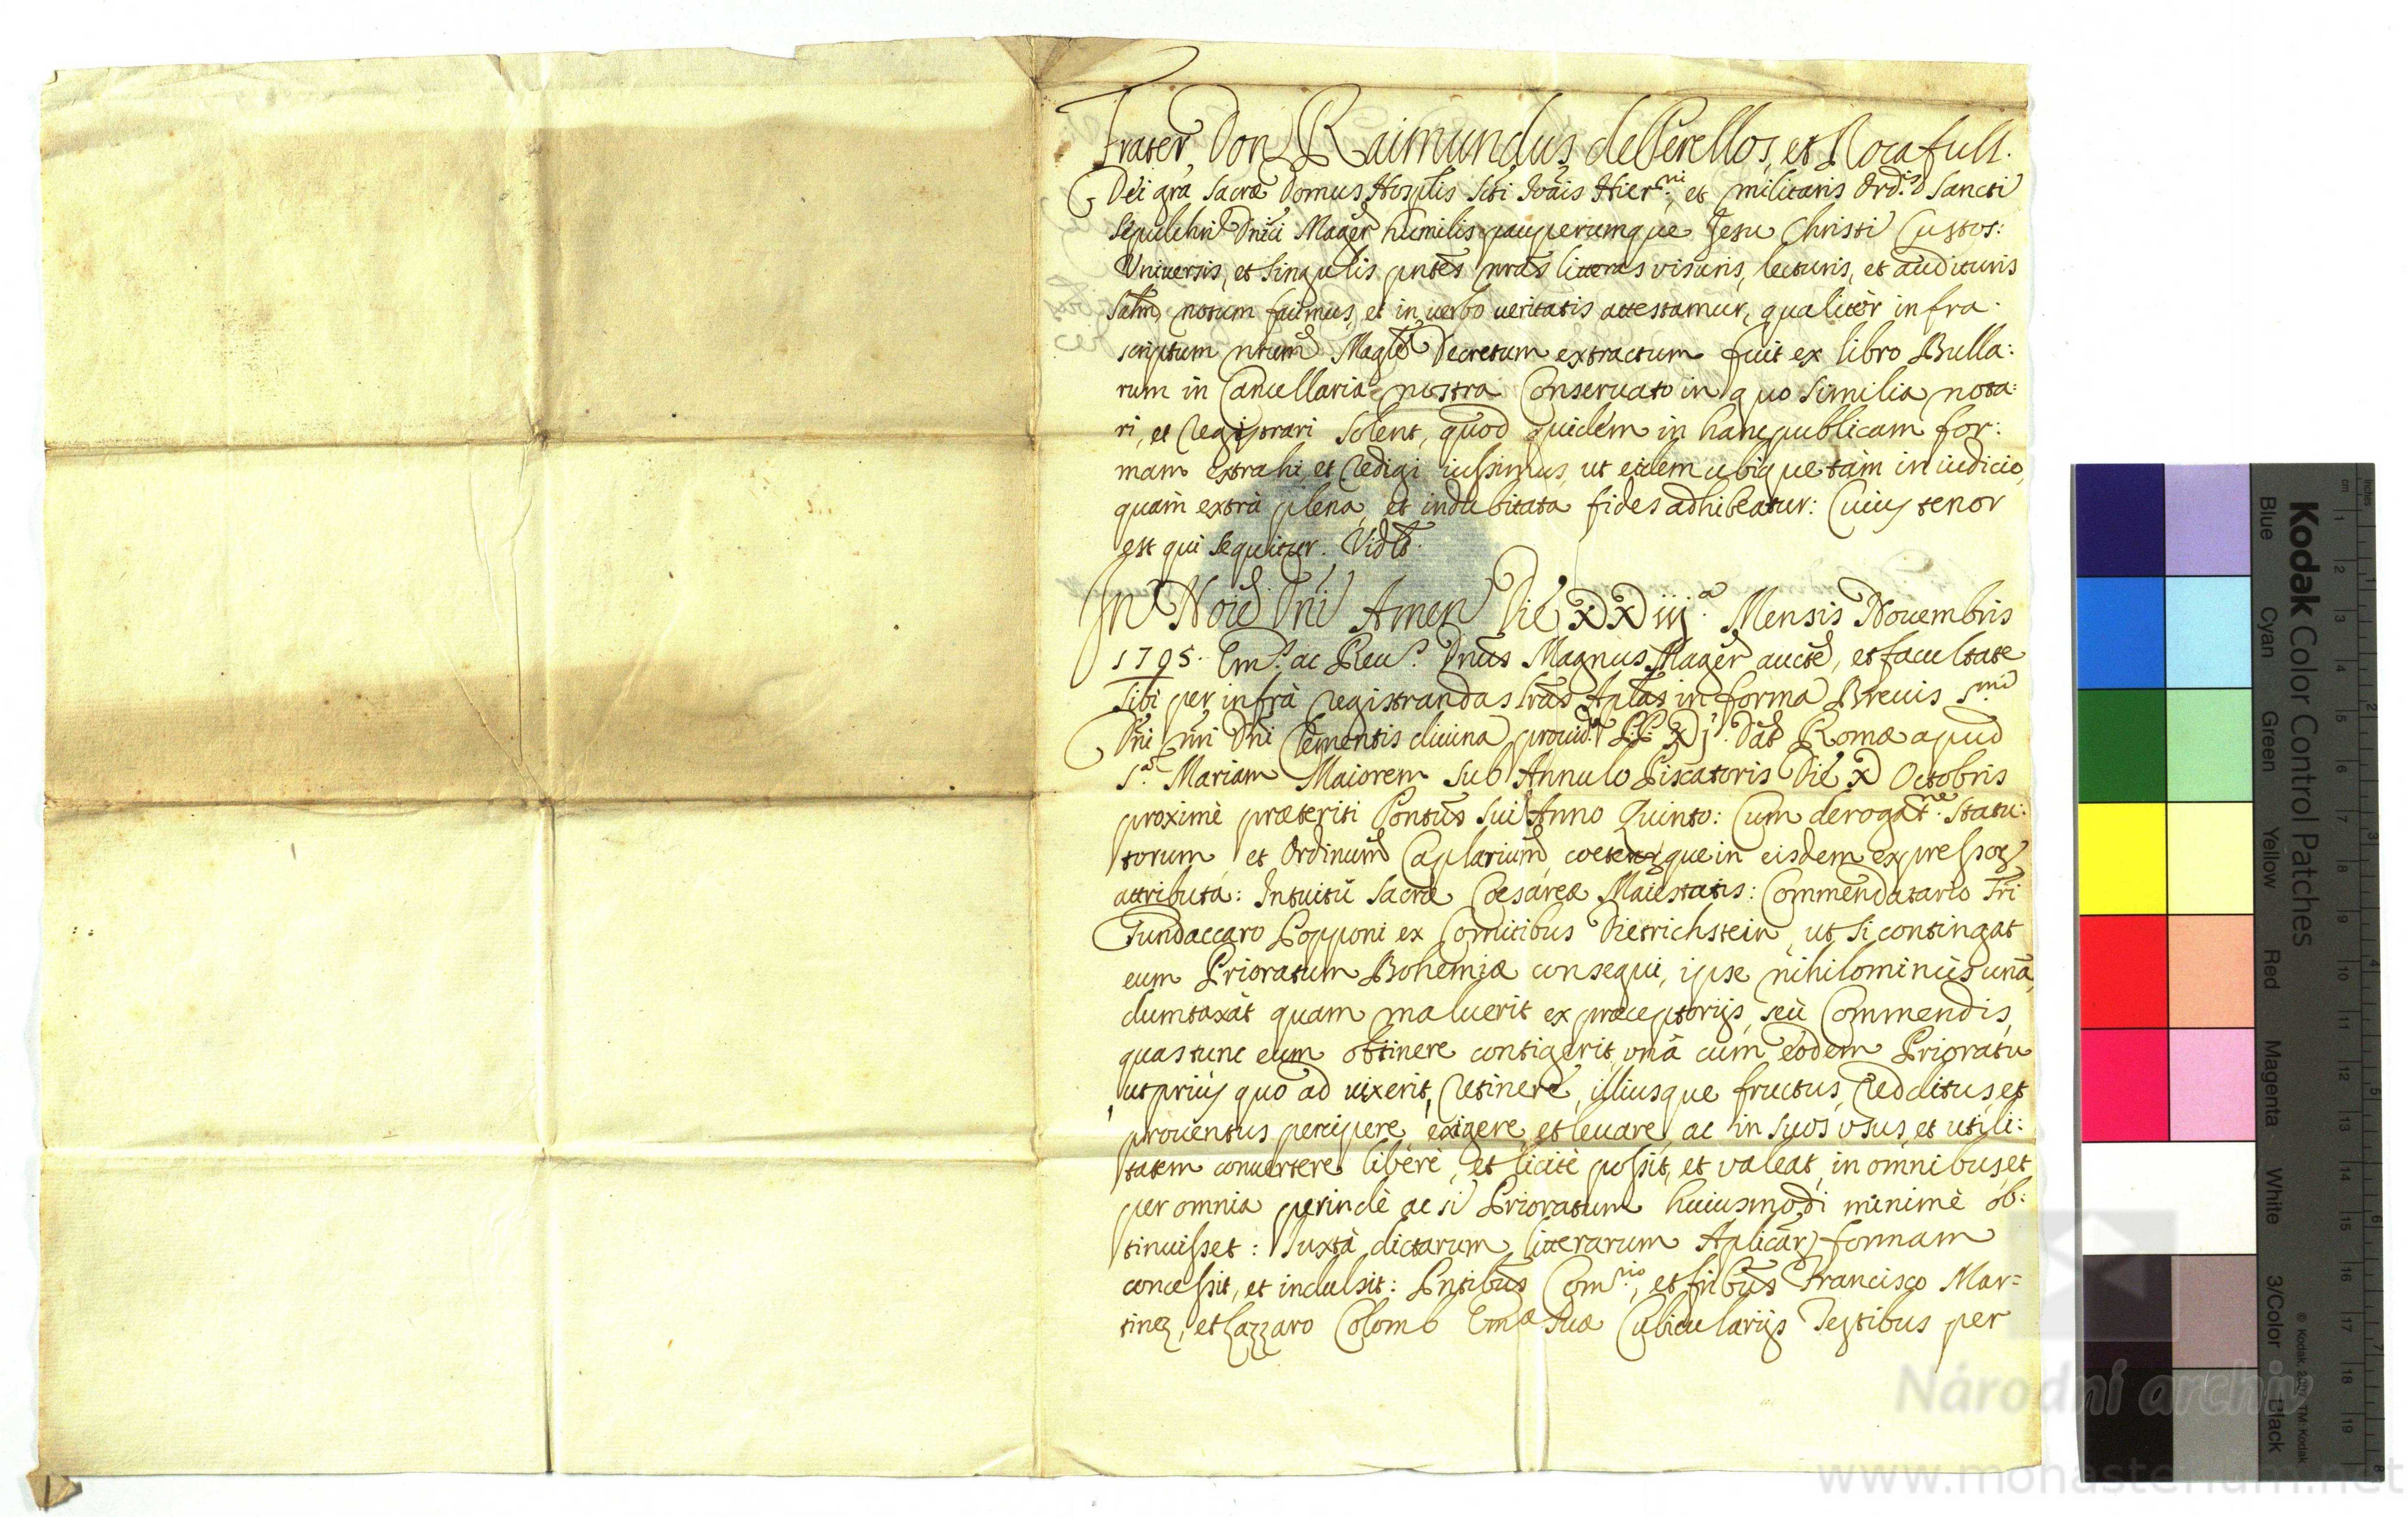 Frater Don Raimundus de Perellos, et Rocafull.
Dei gra Sacræ Domus Hosplis Sti Joais Hier.ni, et militaris Ord.s Sancti
Sepulchri Dnici Mager humilis pauperumque Jesu Christi Custos:
Universis, et singulis pntes nras literas visuris, lecturis, et audituris
Salm, notum facimus, et in verbo veritatis attestamur, qualiter infra
scriptum nrum Magle Decretum extractum fuit ex libro Bulla:
rum in Cancellaria nostra Conservato in quo similia nota:
ri, et registrari solent, quod quidem in hanc publicam for:
mam extrahi, et redigi iussimus, ut eidem ubique tàm in iudicio,
quàm extrà plena, et indubitata fides adhibeatur: Cuius tenor
est qui sequitur. Vidlt.
In Noie Dni Amen Die XXiij.a Mensis Novembris
1705. Em.s ac Rev.s Dnus Magnus Mager aucte, et facultate
sibi per infrà registrandas lras Aplas in forma Brevis S.mi
Dni nri Dni Clementis divina provid.a P.P. XI. Dat Romæ apud
S.a Mariam Maiorem sub Annulo Piscatoris Die X Octobris
proximè præteriti Pontus sui Anno Quinto: Cum derogat.ne Statu:
torum, et Ordinum Caplarium, coeterorumque in eisdem expressor
attributa: Intuitu Sacræ Cæsareæ Maiestatis: Commendatario Fri
Tundaccaro Popponi ex Comitibus Dietrichstein, ut si contingat
eum Prioratum Bohemiæ consequi, ipse nihilominùs unà,
dumtaxàt quam maluerit ex præceptorijs, seù Commendis,
quas tunc eum obtinere contigerit, unà cum eodem Prioratu
ut prius quo ad vixerit, retinere, illiusque fructus, redditus, et
proventus percipere, exigere, et levare, ac in suos usus, et utili:
tatem convertere liberè, et licitè possit, et valeat, in omnibus, et
per omnia perindè ac si Prioratum huiusmodi minimè ob:
tinuisset: Juxtà dictarum literarum Aplicar formam
concessit, et indulsit: Pntibus Com.rio, et fribus Francisco Mar=
tinez, et Lazzaro Colomb Emæ Suæ Cubicularijs Testibus per
Kodak Color Control Patches
Blue Cyan Green Yellow Red Magenta White 3/Color Black
© Kodak, 2007 TM: Kodak
Národní archiv
www.monasterium.net